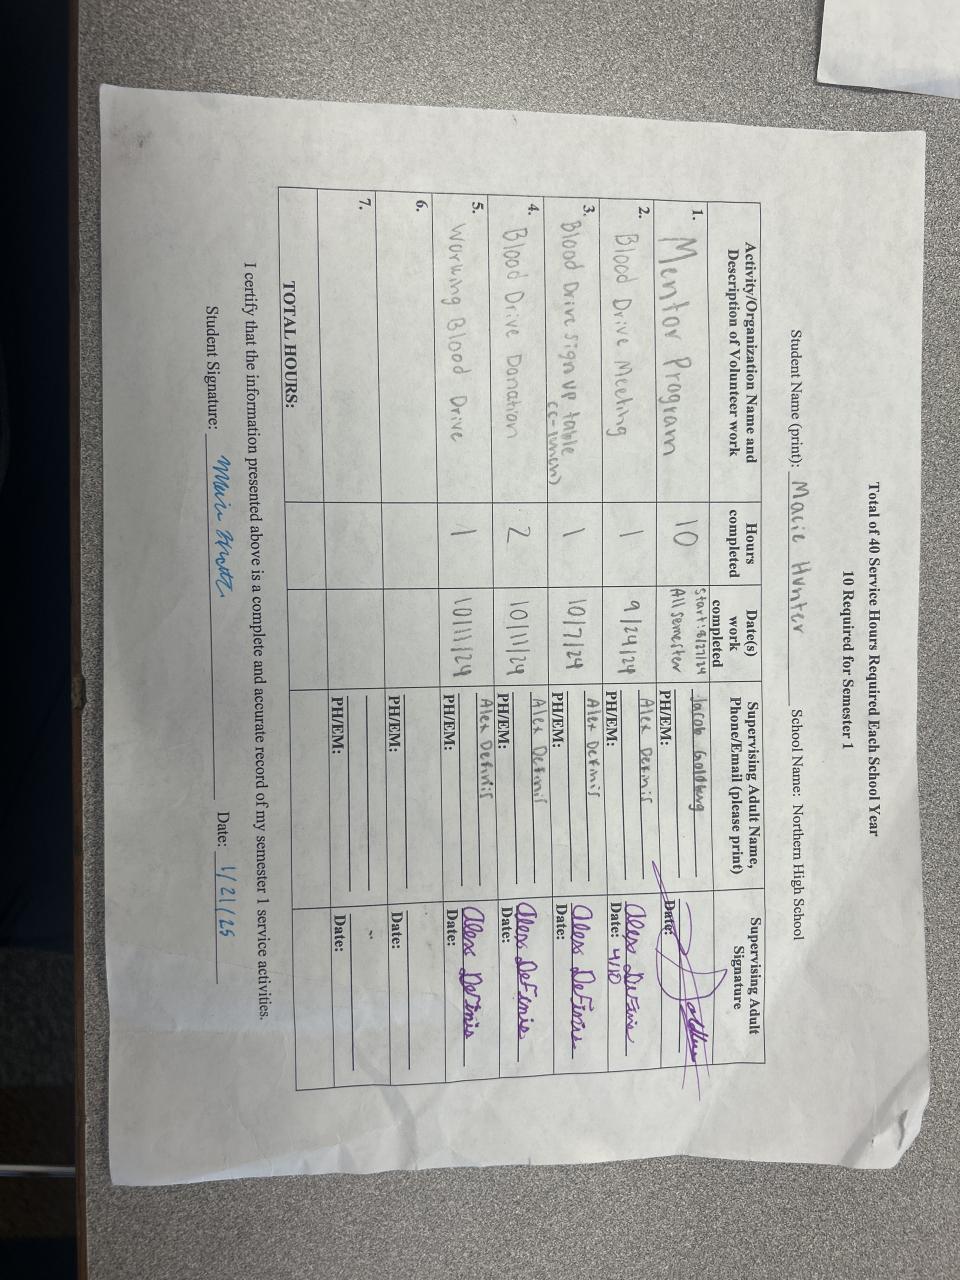 Total of 40 Service Hours Required Each School Year
10 Required for Semester 1
Student Name (print): Macie Hunter School Name: Northern High School
Activity/Organization Name and Description of Volunteer work
Hours completed
Date(s) work completed
Supervising Adult Name, Phone/Email (please print)
Supervising Adult Signature
1. Mentor Program 10 Start: 8/27/24 All semester Jacob Goldberg
PH/EM: Date:
2. Blood Drive Meeting 1 9/24/24 Alex Definis Alex DeFinis
PH/EM: Date: 4/10
3. Blood Drive sign up table 1 10/7/24 Alex Definis Alex DeFinis
PH/EM: Date:
4. Blood Drive Donation 2 10/11/24 Alex Definis Alex DeFinis
PH/EM: Date:
5. Working Blood Drive 1 10/11/24 Alex Definis Alex DeFinis
PH/EM: Date:
6.
PH/EM: Date:
7.
PH/EM: Date:
TOTAL HOURS:
I certify that the information presented above is a complete and accurate record of my semester 1 service activities.
Student Signature: Date: 1/21/25